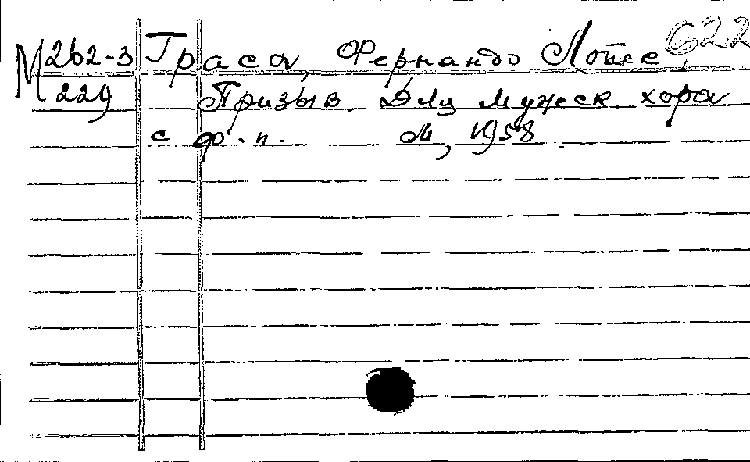 М 262-3 Граса, Фернандо Лопес 622
229 Призыв. Для мужск. хора
с ф.-п. М, 1958